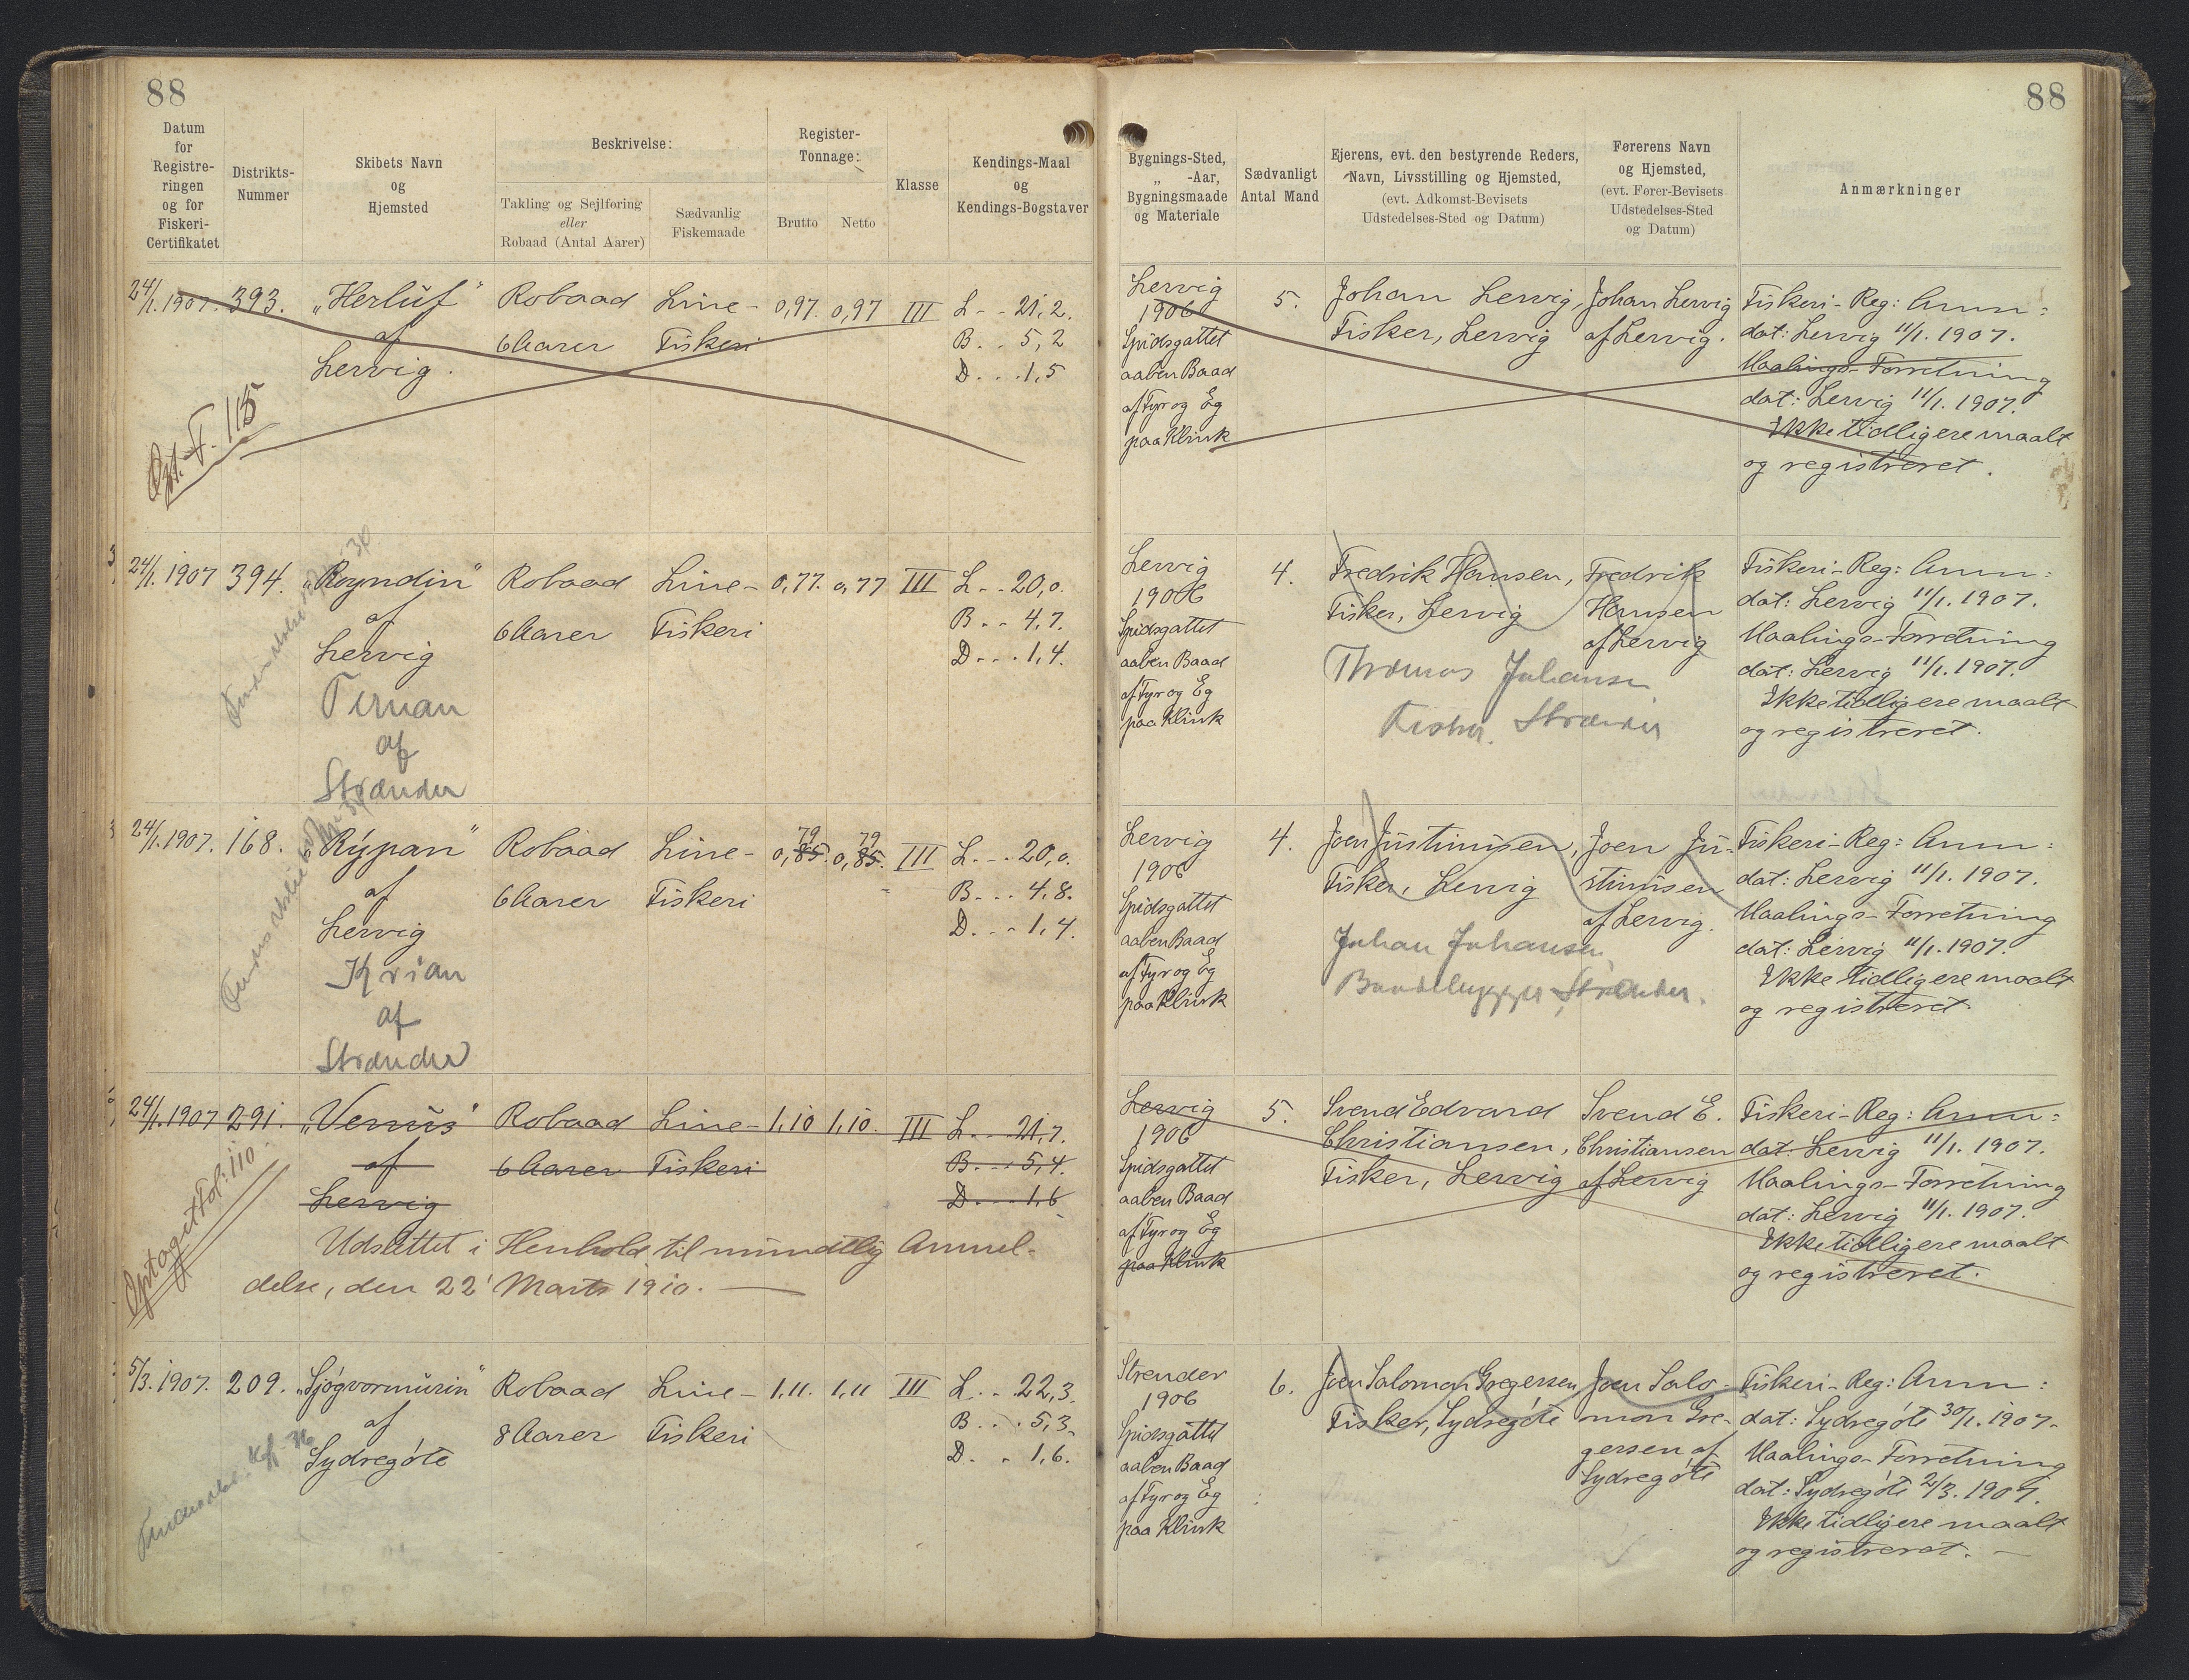 88
88
Datum
for
Registre-
ringen
og for
Fiskeri-
Certifikatet
Distrikts-
Nummer
Skibets Navn
og
Hjemsted
Beskrivelse:
Takling og Sejlføring
eller
Robaad (Antal Aarer)
Sædvanlig
Fiskemaade
Register-
Tonnage:
Brutto
Netto
Klasse
Kendings-Maal
og
Kendings-Bogstaver
Bygnings-Sted,
„ -Aar,
Bygningsmaade
og Materiale
Sædvanligt
Antal Mand
Ejerens, evt. den bestyrende Reders,
Navn, Livsstilling og Hjemsted,
(evt. Adkomst-Bevisets
Udstedelses-Sted og Datum)
Førerens Navn
og Hjemsted,
(evt. Fører-Bevisets
Udstedelses-Sted
og Datum)
Anmærkninger
24/1. 1907. 393. „Herluf“ Robaad Line- 0,97. 0,97 III L - - 21,2.
af 6 Aarer Fiskeri B. . 5,2
Lervig. D. . . 1,5
Opt. F. 115
Lervig
1906
Spidsgattet
aaben Baad
af Fyr og Eg
paa Klink
5.
Johan Lervig,
Fisker, Lervig
Johan Lervig
af Lervig.
Fiskeri-Reg: Anm:
dat: Lervig 11/1. 1907.
Maalings-Forretning
dat: Lervig 11/1. 1907.
Ikke tidligere maalt
og registreret.
24/1. 1907 394. „Royndin“ Robaad Line- 0,77. 0,77 III L - - 20,0.
af 6 Aarer Fiskeri B - - 4,7.
Lervig D - - . 1,4.
Ternan
af
Strænder
Lervig
1906
Spidsgattet
aaben Baad
af Fyr og Eg
paa Klink
4.
Fredrik Hansen,
Fisker, Lervig
Thomas Johansen
Fisker. Strænder
Fredrik
Hansen
af Lervig
Fiskeri-Reg: Anm:
dat: Lervig 11/1. 1907.
Maalings-Forretning
dat: Lervig 11/1. 1907.
Ikke tidligere maalt
og registreret.
24/1. 1907. 168. „Rýpan“ Robaad Line- 0,85. 79 0,85. 79 III L. - . 20,0.
af 6 Aarer Fiskeri B. . . 4,8.
Lervig D. . . 1,4.
Krian
af
Strænder
Lervig
1906
Spidsgattet
aaben Baad
af Fyr og Eg
paa Klink
4.
Joen Justinusen,
Fisker, Lervig
Johan Johansen,
Baadebygger, Strænder.
Joen Ju-
stinusen
af Lervig.
Fiskeri-Reg: Anm:
dat: Lervig 11/1. 1907.
Maalings-Forretning
dat: Lervig 11/1. 1907.
Ikke tidligere maalt
og registreret.
24/1. 1907 291. „Venus“ Robaad Line- 1,10 1,10. III L. . . 21,7.
af 6 Aarer Fiskeri B. . . 5,4.
Lervig D. . . . 1,6
Udslettet i Henhold til mundtlig Anmel-
delse, den 22' Marts 1910.
Optaget Fol: 110
Lervig
1906
Spidsgattet
aaben Baad
af Fyr og Eg
paa Klink
5.
Svend Edvard
Christiansen,
Fisker, Lervig
Svend E.
Christiansen
af Lervig
Fiskeri-Reg: Anm:
dat: Lervig 11/1. 1907.
Maalings-Forretning
dat: Lervig 11/1. 1907.
Ikke tidligere maalt
og registreret.
5/3. 1907. 209. „Sjógvormurin“ Robaad Line- 1,11. 1,11 III L. . . 22,3.
af 8 Aarer Fiskeri B. . . 5,3.
Sydregóte D. . . 1,6.
Strender
1906
Spidsgattet
aaben Baad
af Fyr og Eg
paa Klink
6.
Joen Salomon Gregersen
Fisker, Sydregóte
Joen Salo-
mon Gre-
gersen af
Sydregóte
Fiskeri-Reg: Anm:
dat: Sydregóte 30/1. 1907.
Maalings-Forretning
dat: Sydregóte 2/3. 1907.
Ikke tidligere maalt
og registreret.